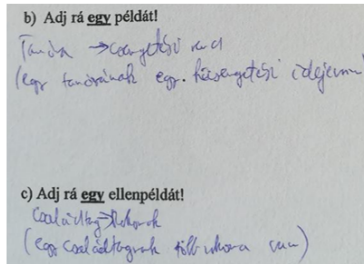 b) Adj rá egy példát!
Tanóra → csengetési rend
(egy tanórának egy. kicsengetési ideje van)
c) Adj rá egy ellenpéldát!
Családtag → rokonok
(egy családtagnak több rokona van)